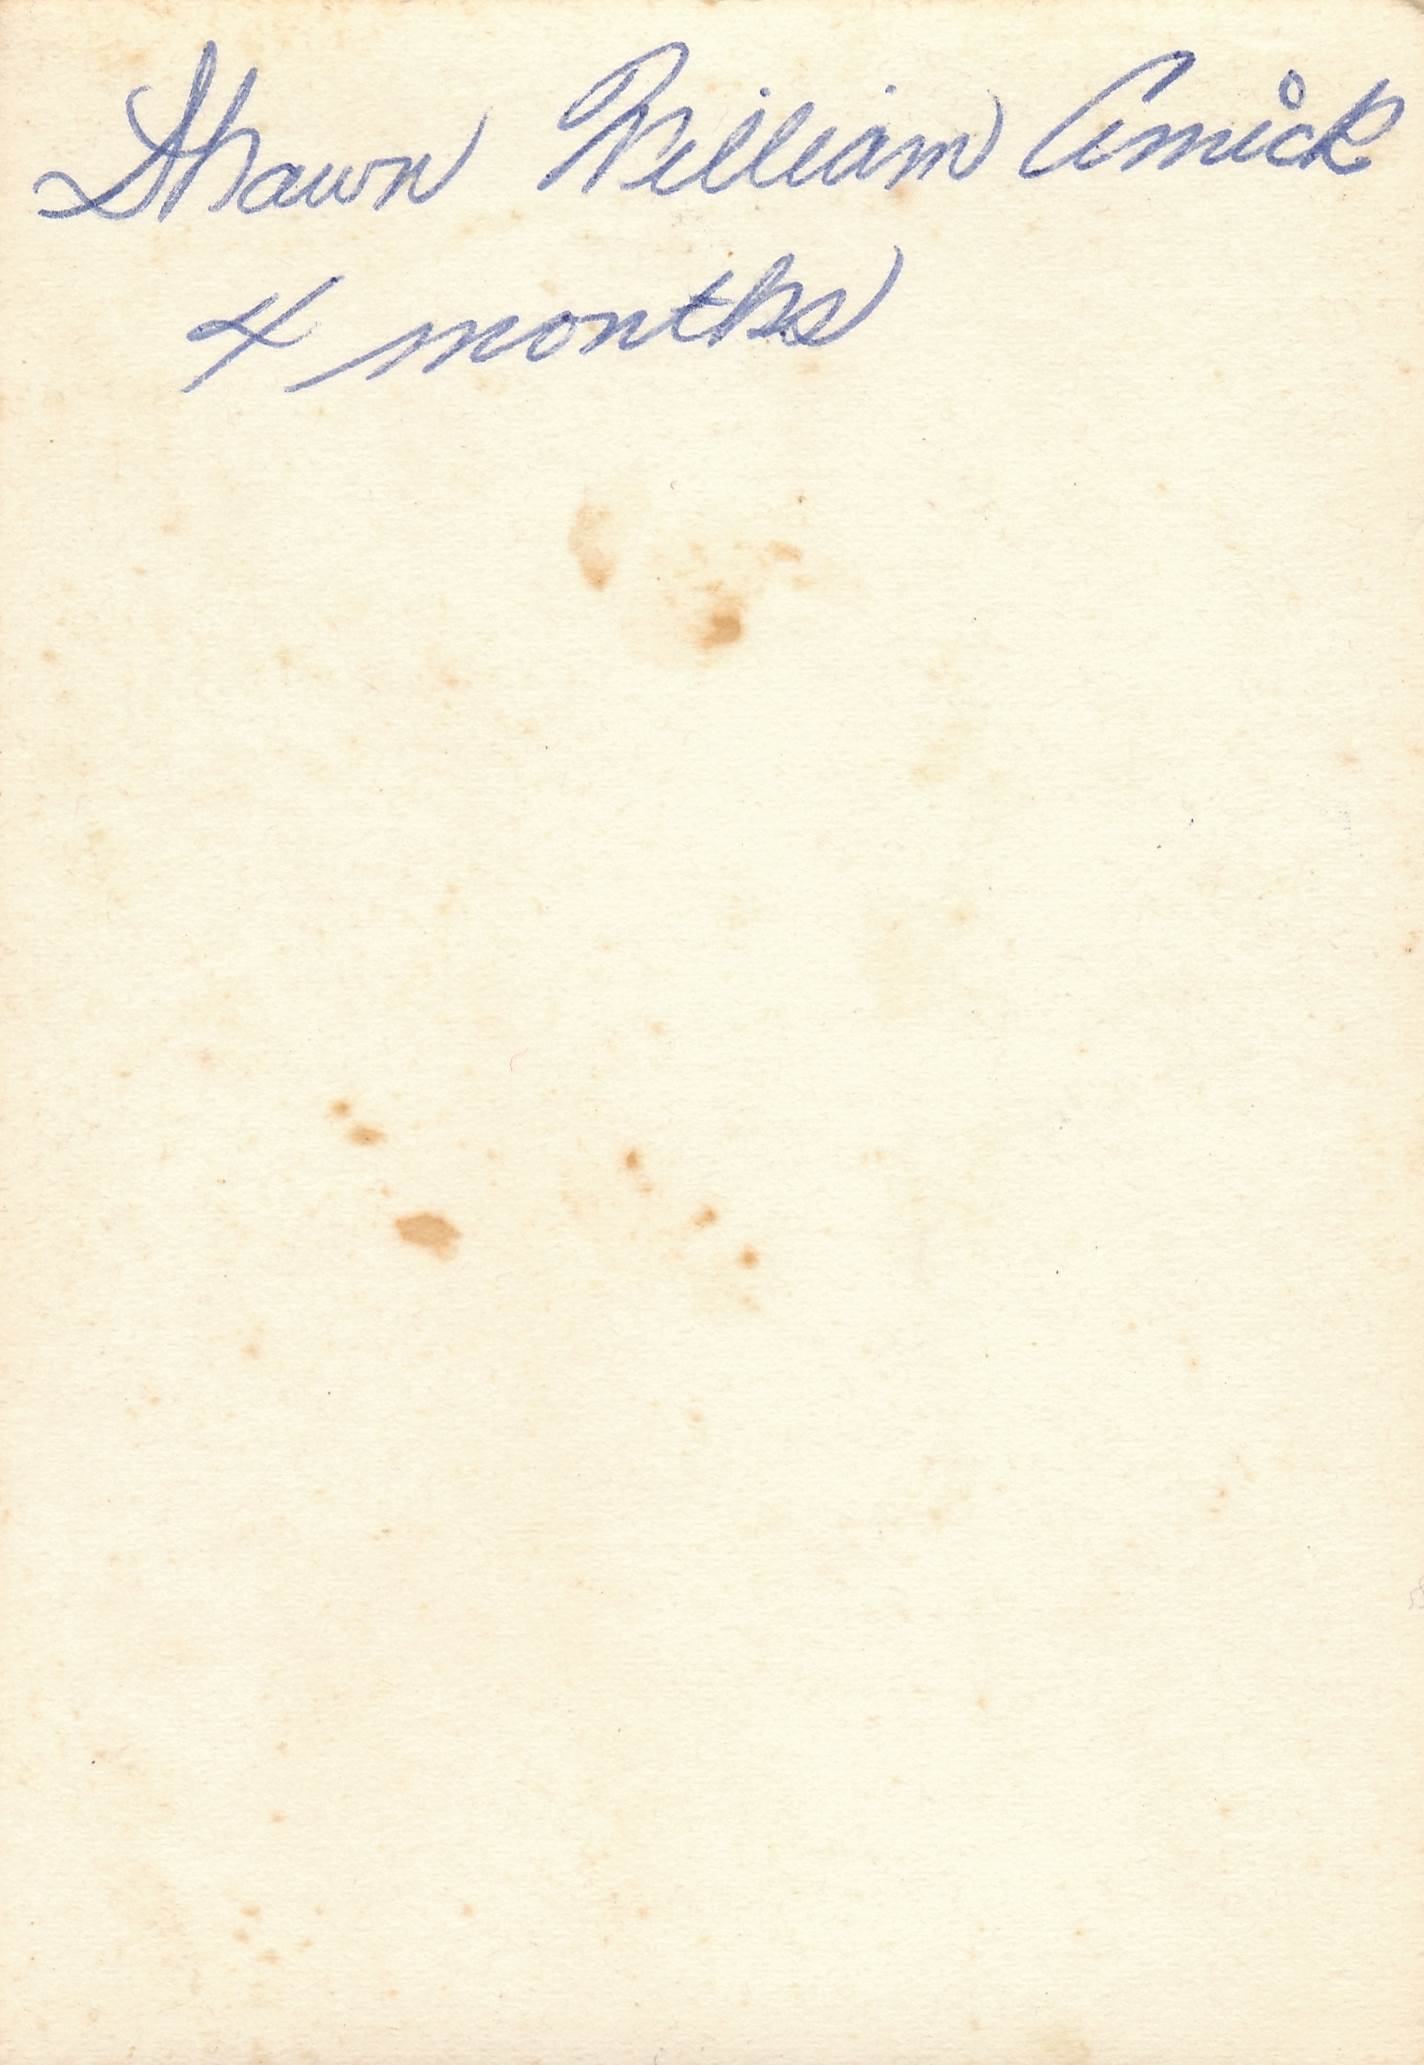 Shawn William Amick
4 months